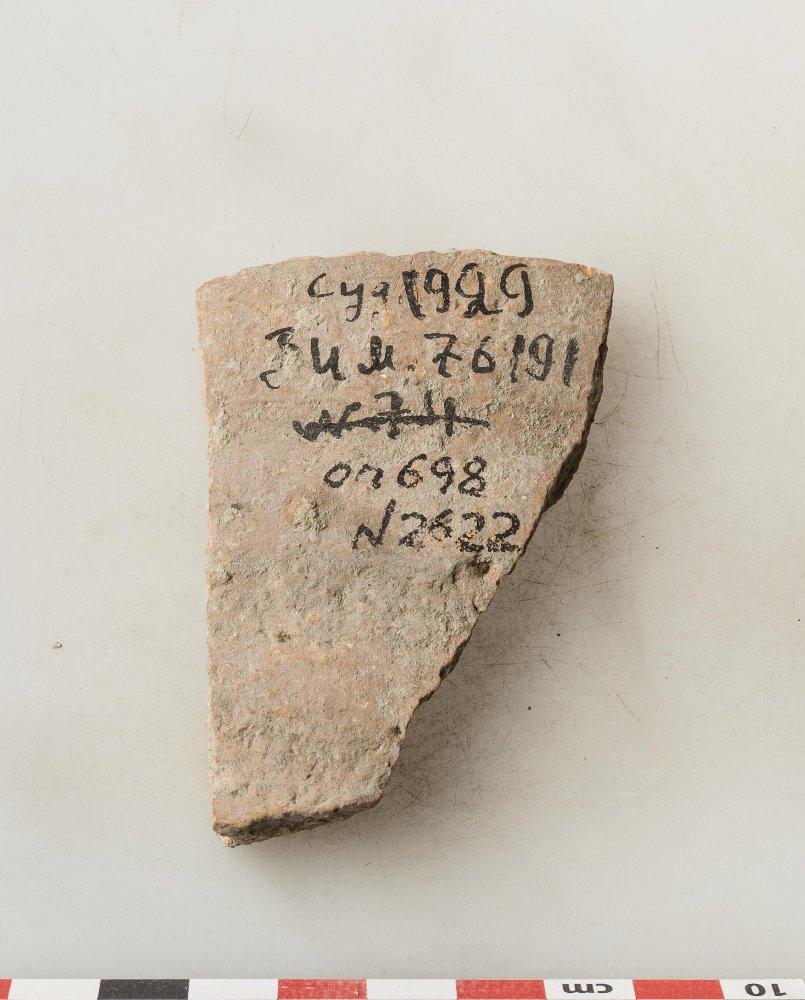 Суд 1929
ЗИМ. 76/91
№ 74
оп 698
N 2622
cm
10